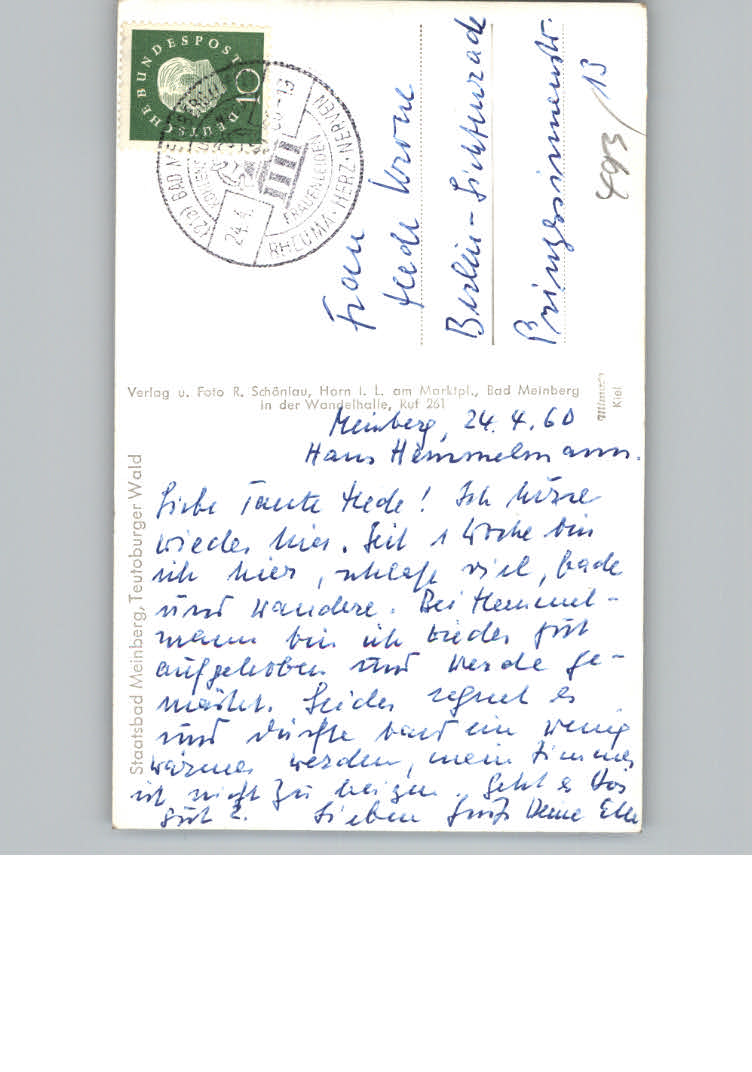 DEUTSCHE BUNDESPOST
10
(21a) BAD MEINBERG
24.4.
FRAUENLEIDEN
RHEUMA·HERZ·NERVEN
Frau
Hede Krone
Berlin-Lichtenrade
Prinzessinnenstr.
13
493/
Verlag u. Foto R. Schönlau, Horn i. L. am Marktpl., Bad Meinberg
in der Wandelhalle, Ruf 261
Kiel
Staatsbad Meinberg, Teutoburger Wald
Meinberg, 24.4.60
Haus Hemmelmann.
Liebe Tante Hede! Ich
wieder hier. Seit 1 Woche bin
ich hier, schlafe viel, bade
und wandere. Bei Hemmel-
mann bin ich wieder gut
aufgehoben und werde ge-
mästet. Leider regnet es
und dürfte bald ein wenig
wärmer werden, mein Zimmer
ist nicht zu heizen. Geht es Dir
gut? Lieben Gruß Deine Elle